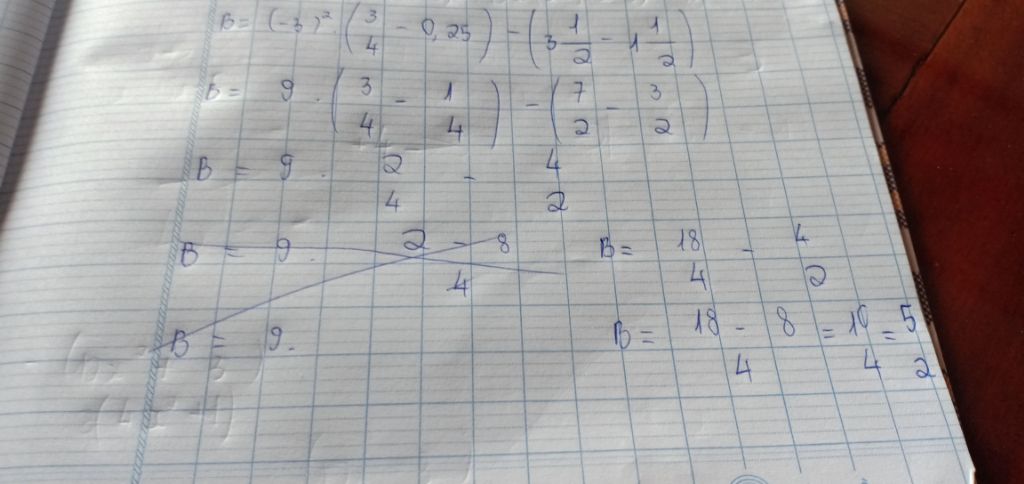 B = (-3)² · (3/4 - 0,25) - (3 1/2 - 1 1/2)
B = 9 · (3/4 - 1/4) - (7/2 - 3/2)
B = 9 · 2/4 - 4/2
B = 9 · (2 - 8)/4
B = 9 ·
B = 18/4 - 4/2
B = (18 - 8)/4 = 10/4 = 5/2